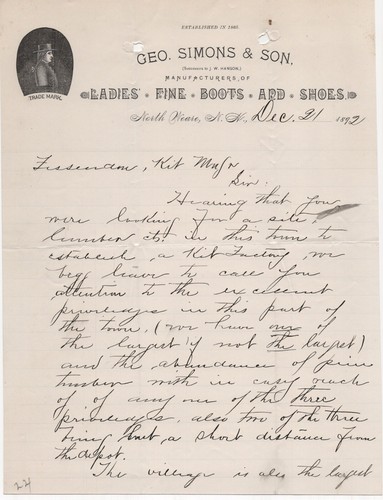 ESTABLISHED IN 1860.
GEO. SIMONS & SON,
(Successors to J. W. HANSON,)
MANUFACTURERS OF
LADIES' FINE BOOTS AND SHOES.
TRADE MARK.
North Weare, N. H., Dec. 21 1892
Fessenden, Kit Mnfr
Sir.
Hearing that you
were looking for a site,
lumber &c. in this town to
establish a Kit Factory, we
begg leave to call you
attention to the excellent
priviledges in this part of
the town, (we have one of
the largest if not the largest)
and the abundance of pine
timber with in easy reach
of of any one of the three
priviledges, also two of the three
being but a short distance from
the depot.
The village is also the largest
24